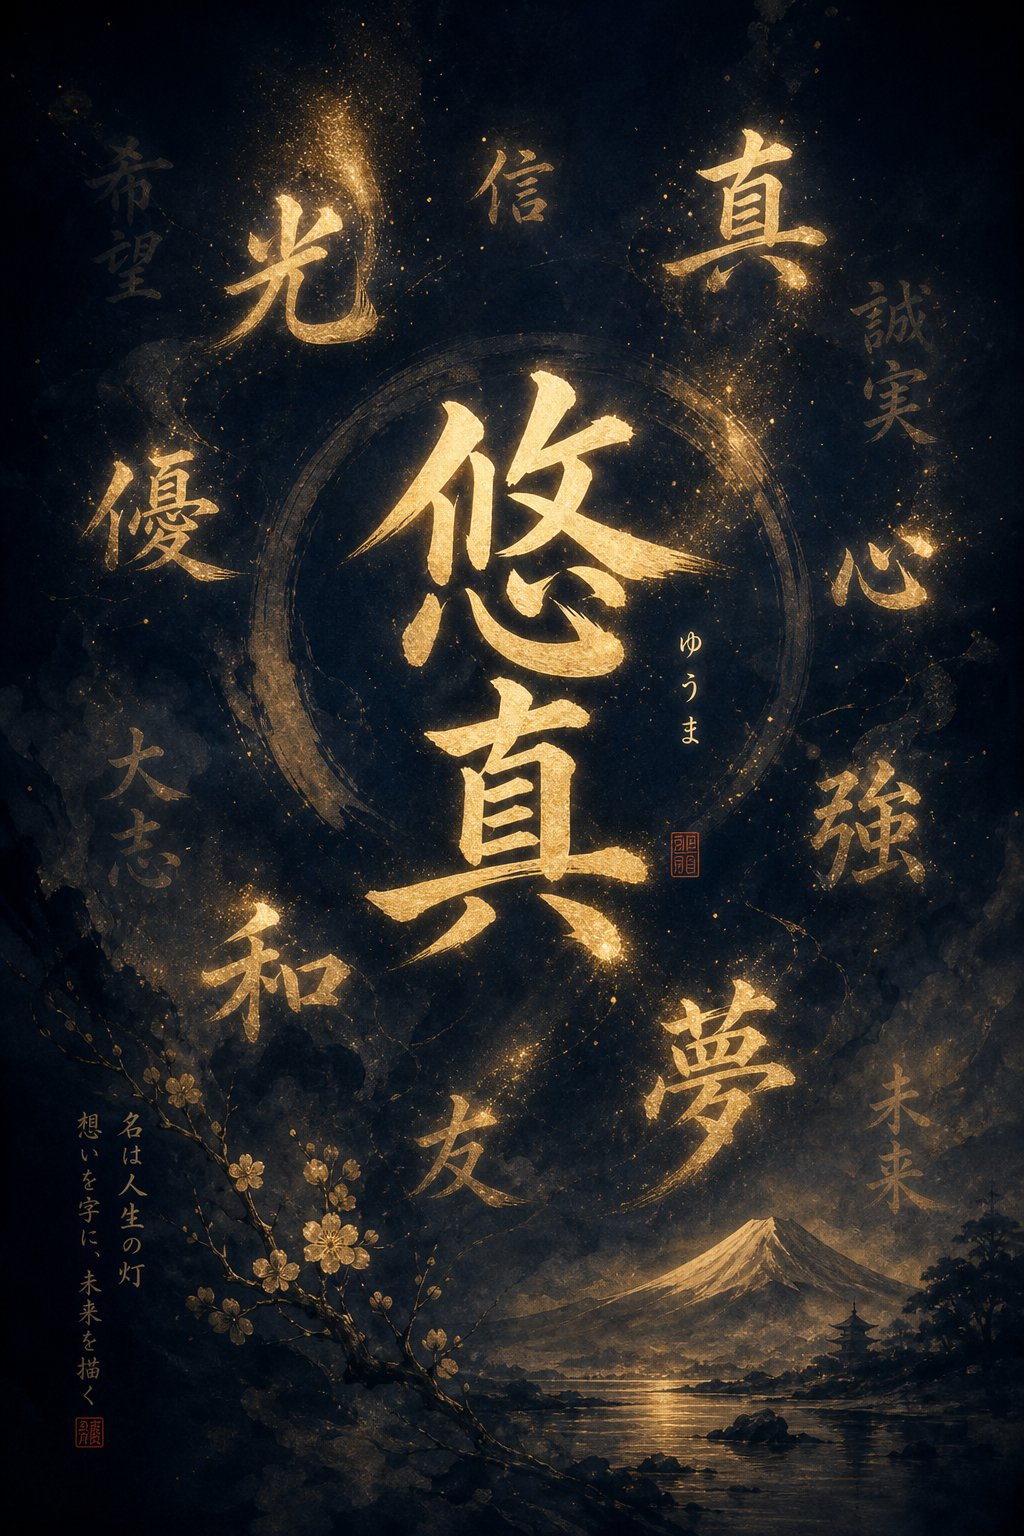 希望
光
信
真
誠実
優
心
悠真
ゆうま
大志
強
和
夢
友
未来
名は人生の灯
想いを字に、未来を描く